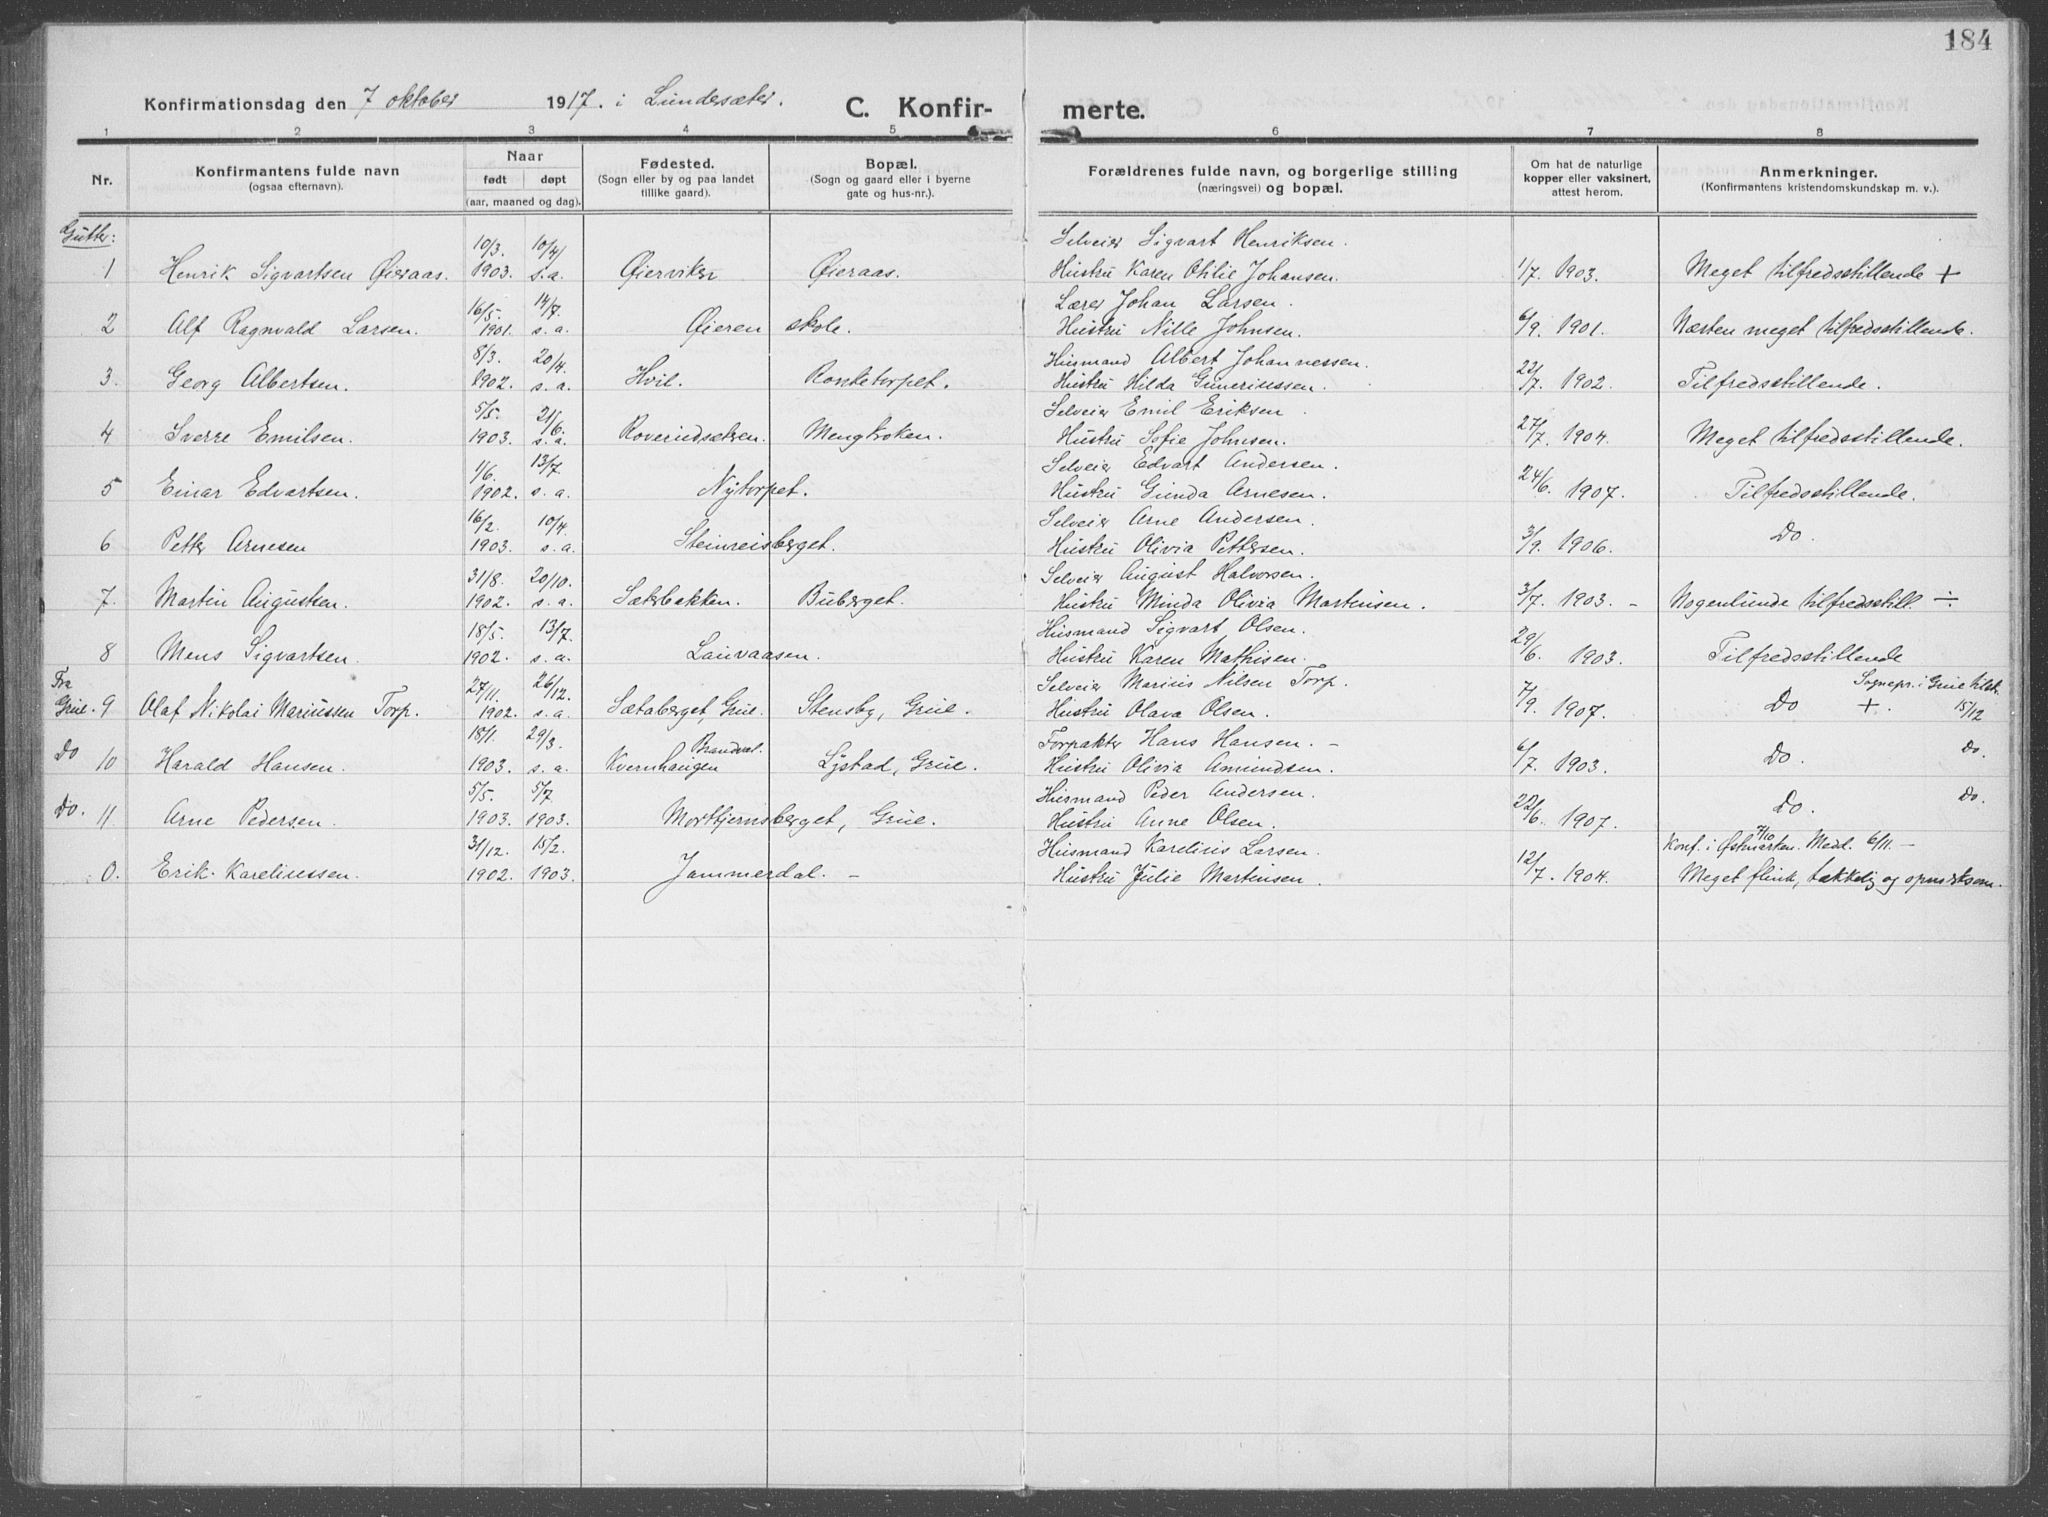 184
Konfirmationsdag den 7 oktober 1917. i Lundersæter.
C. Konfirmerte.
1 2 3 4 5 6 7 8
Nr.
Konfirmantens fulde navn
(ogsaa efternavn).
Naar
født døpt
(aar, maaned og dag).
Fødested.
(Sogn eller by og paa landet
tillike gaard).
Bopæl.
(Sogn og gaard eller i byerne
gate og hus-nr.).
Forældrenes fulde navn, og borgerlige stilling
(næringsvei) og bopæl.
Om hat de naturlige
kopper eller vaksinert,
attest herom.
Anmerkninger.
(Konfirmantens kristendomskundskap m. v.).
Gutter:
10/3. 10/4 Selveier Sigvart Henriksen.
1 Henrik Sigvartsen Øieraas. 1903. s.a. Øierviken Øieraas. Hustru Karen Otilie Johansen. 1/7. 1903. Meget tilfredsstillende +
16/5. 14/7. Lærer Johan Larsen.
2 Alf Ragnvald Larsen. 1901. s.a. Øieren skole. Hustru Nille Johnsen. 6/9. 1901. Næsten meget tilfredsstillende.
8/3. 20/4. Husmand Albert Johannessen.
3. Georg Albertsen. 1902. s.a. Hvil. Rontetorpet. Hustru Hilda Gunerius­sen. 22/7. 1902. Tilfredsstillende.
5/5. 21/6. Selveier Emil Eriksen.
4 Sverre Emilsen. 1903. s.a. Roverudsætren. Mengkroken. Hustru Sofie Johnsen. 27/7. 1904. Meget tilfredsstillende.
1/6. 13/7. Selveier Edvart Andersen.
5 Einar Edvartsen. 1902. s.a. Nytorpet. Hustru Gunda Arnesen. 24/6. 1907. Tilfredsstillende.
16/2. 10/4. Selveier Arne Andersen.
6 Petter Arnesen 1903. s.a. Steinreisberget. Hustru Olivia Pettersen. 3/9. 1906. Do.
31/8. 20/10. Selveier August Halvorsen.
7. Martin Augustsen. 1902. s.a. Sæterbakken. Buberget. Hustru Minda Olivia Martensen. 3/7. 1903. – Nogenlunde tilfredsstill. ÷
18/5. 13/7. Husmand Sigvart Olsen.
8 Mens Sigvartsen. 1902. s.a. Lauvaasen. Hustru Karen Mathisen. 29/6. 1903. Tilfredsstillende
Fra 27/11. 26/12. Selveier Marius Nilsen Torp. Sognepr. i Grue tilst.
Grue. 9 Olaf Nikolai Mariussen Torp. 1902. s.a. Sætaberget, Grue. Stensby, Grue. Hustru Olava Olsen. 7/9. 1907. Do +. 15/12
18/1 29/3. Brandval. Forpakter Hans Hansen. –
Do 10 Harald Hansen. 1903. s.a. Kvernhaugen Lystad, Grue. Hustru Olivia Amundsen. 6/7. 1903. Do. Do.
5/5. 5/7 Husmand Peder Andersen.
Do. 11 Arne Pedersen. 1903. 1903. Morttjernsberget, Grue. Hustru Anne Olsen. 22/6. 1907. Do. Do.
31/12. 15/2. Husmand Karelius Larsen. Konf. i Østmarken 7/10. Medd. 6/11. –
0. Erik Kareliussen. 1902. 1903. Jammerdal. – Hustru Julie Martensen. 12/7. 1904. Meget flink, tækkelig og opmerksom.